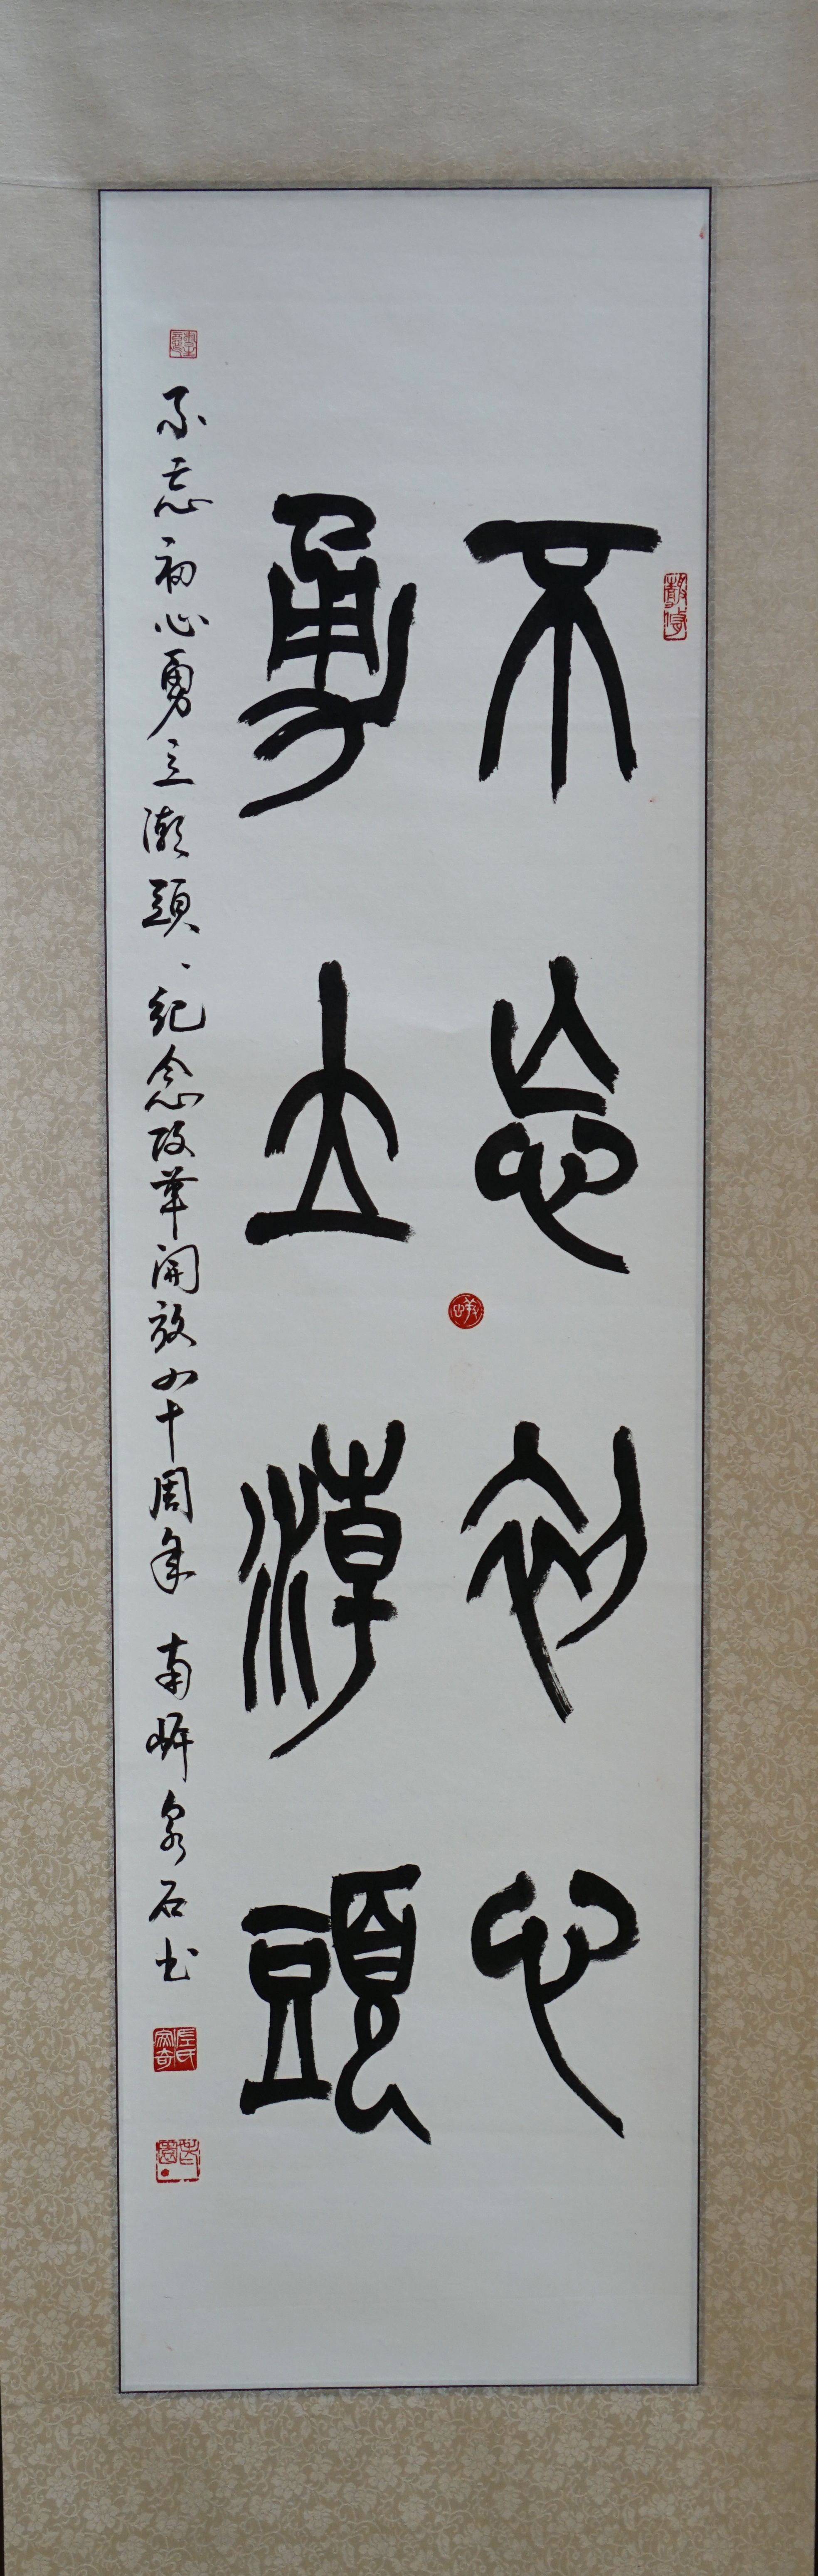 不忘初心
勇立潮頭
不忘初心勇立潮頭、紀念改革開放四十周年 南 泉石书